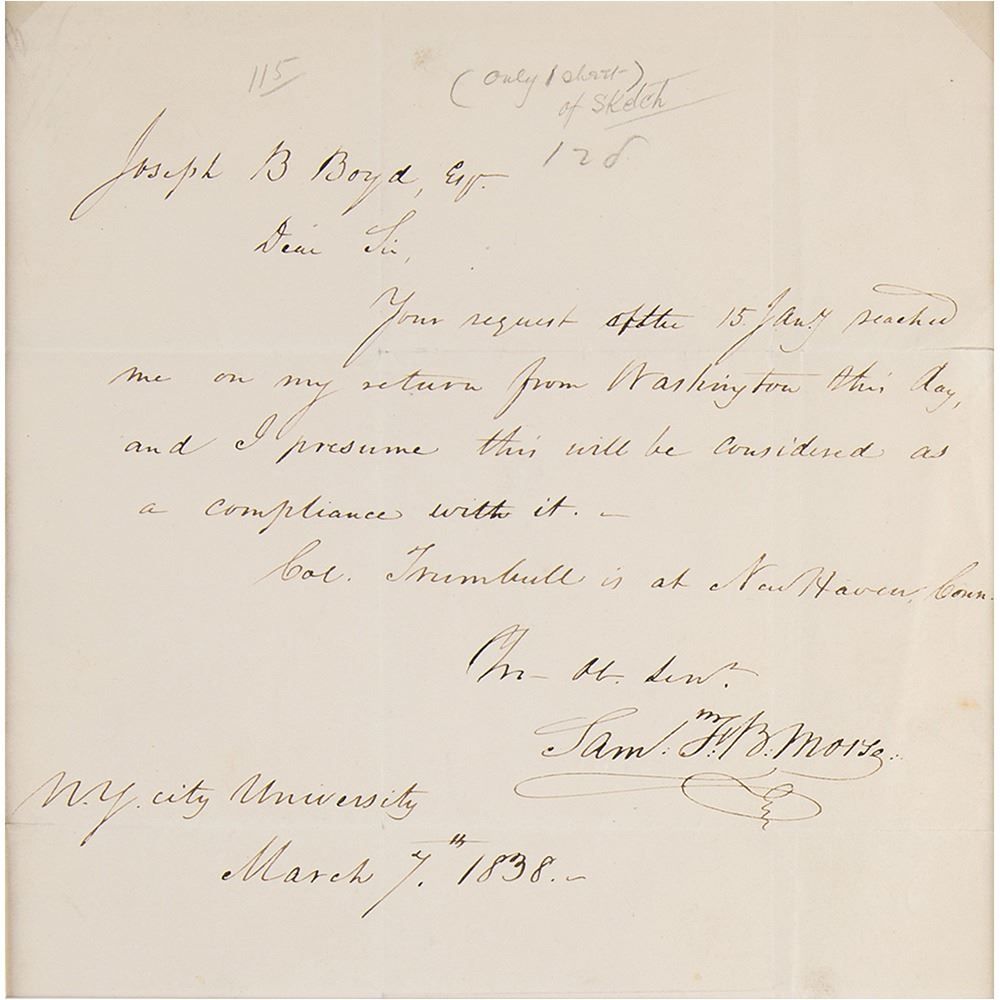 115
(only 1 short)
of sketch
Joseph B Boyd, Esqr.
Dear Sir,
Your request of the 15 Jany reached
me on my return from Washington this day,
and I presume this will be considered as
a compliance with it. –
Col. Trumbull is at New Haven, Conn.
Yr Ob. Servt.
Saml. F. B. Morse.
N.Y. city University
March 7.th 1838. –